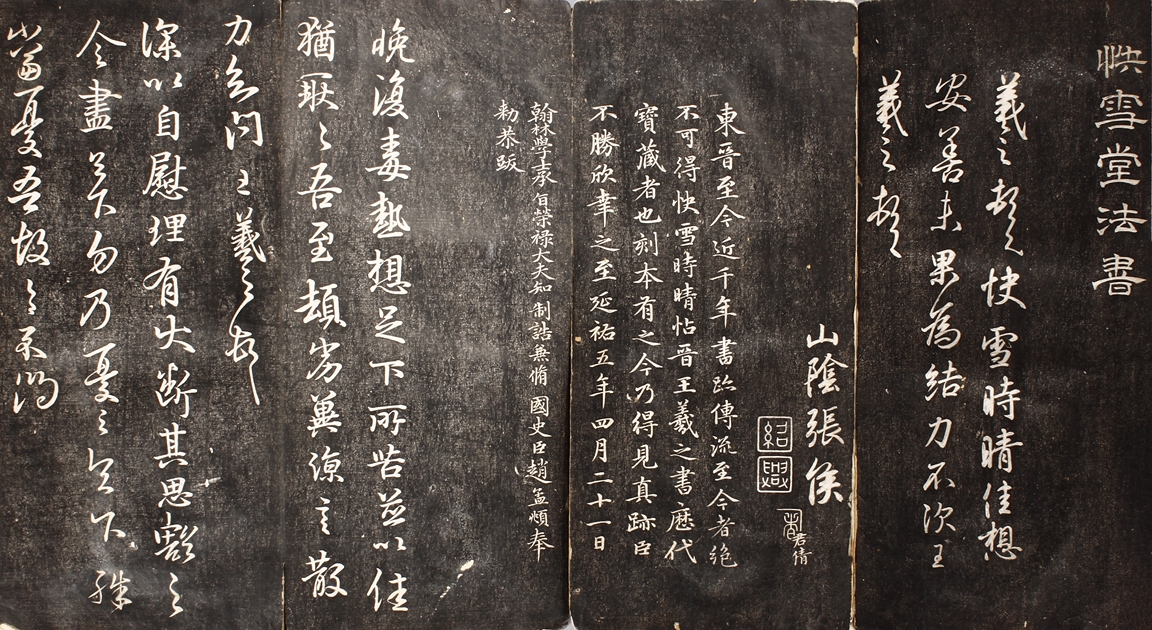 快雪堂法書
羲之頓首快雪時晴佳想
安善未果為結力不次王
羲之頓首
山陰張侯
紹興
君倩
東晉至今近千年書跡傳流至今者絕
不可得快雪時晴帖晉王羲之書歷代
寶藏者也刻本有之今乃得見真跡臣
不勝欣幸之至延祐五年四月二十一日
翰林學士承旨榮祿大夫知制誥兼脩國史臣趙孟頫奉
勑恭跋
晚復毒熱想足下所苦並以佳
猶耿耿吾至頓劣冀涼言散
力知問王羲之頓首
深以自慰理有大斷其思豁之
令盡足下勿乃憂之足下殊
當憂吾故之不同